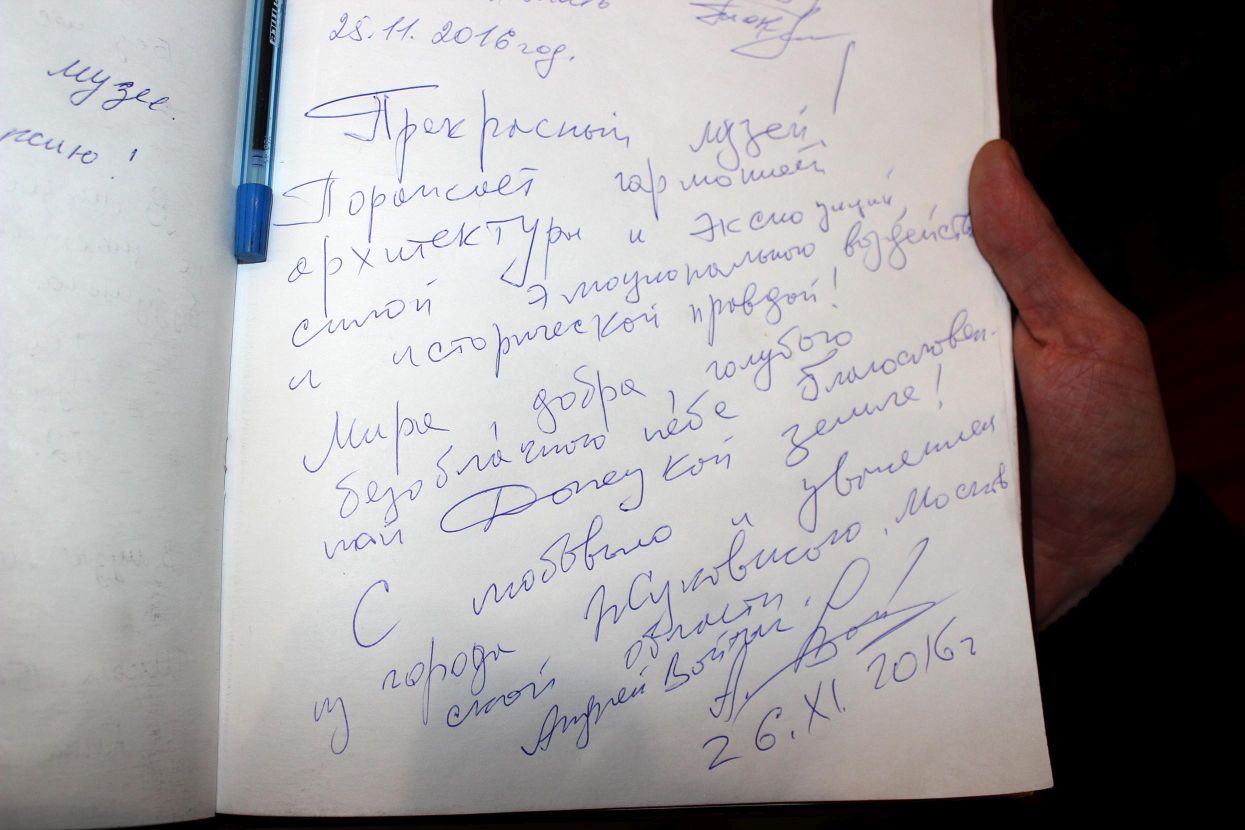 музее.
25.11.2016 год.
Прекрасный музей!
Поражает гармонией
архитектуры и экспозиций,
силой эмоционального воздейств
и исторической правдой!
Мира, добра, голубого
безоблачного неба благословен-
ной Донецкой земле!
С любовью и уважением
из города Жуковского, Москов
ской области.
Андрей
26.XI.2016г